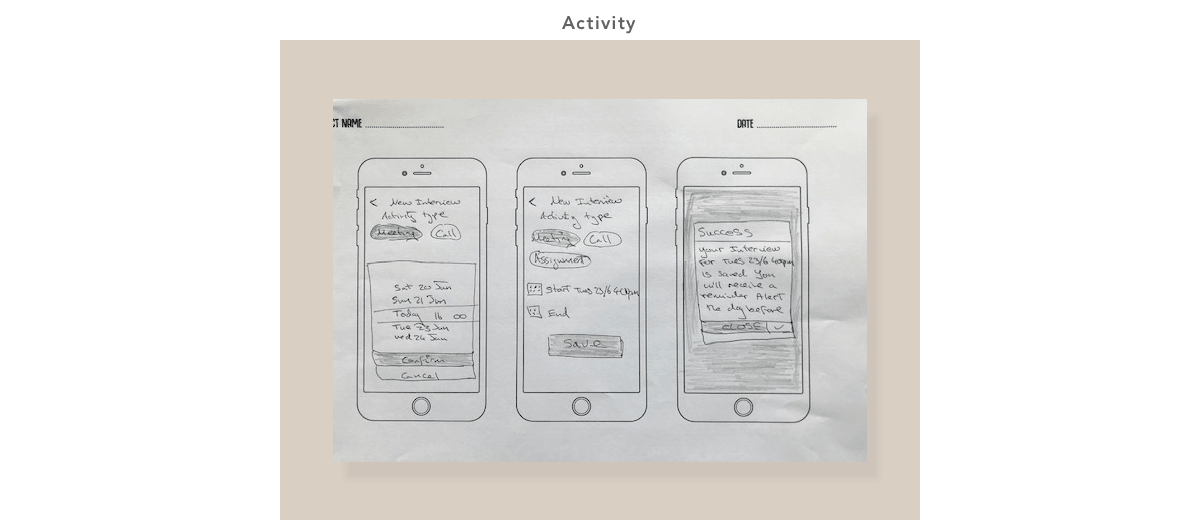 Activity
CT NAME
DATE
< New Interview
Activity type
Meeting Call
Sat 20 Jun
Sun 21 Jun
Today 16 00
Tue 23 Jun
wed 24 Jun
Confirm
Cancel
< New Interview
Activity type
Meeting Call
Assignment
Start Tues 23/6 4:00pm
End
Save
Success
your Interview
for Tues 23/6 4:00pm
is saved You
will receive a
reminder Alert
the day before
CLOSE